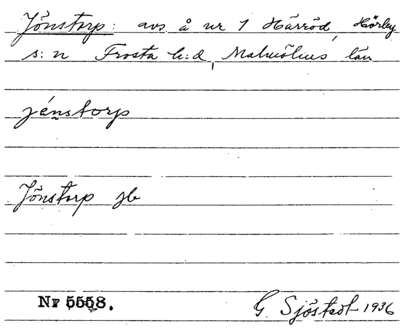 Jönstorp: avs å nr 1 Härröd, Hörby
s:n Frosta h:d, Malmöhus län
jénstorp
Jönstorp jb
Nr 5558.
G. Sjöstedt 1936